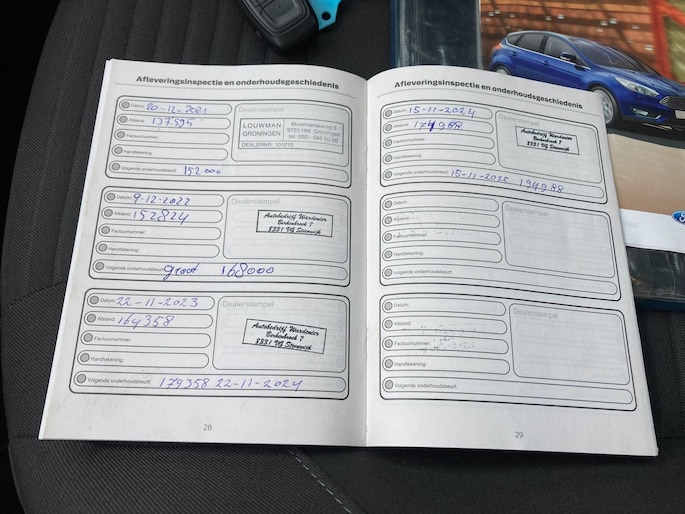 Afleveringsinspectie en onderhoudsgeschiedenis
Datum: 20-12-2021
Afstand: 137595
Factuurnummer:
Handtekening:
Volgende onderhoudsbeurt: 152000
Dealerstempel
LOUWMAN
GRONINGEN
DEALERNR: 101210
9723 HM Groningen
Datum: 9-12-2022
Afstand: 152824
Factuurnummer:
Handtekening:
Volgende onderhoudsbeurt: groot 168000
Dealerstempel
Autobedrijf Wardenier
Berkenbroek 7
8331 VG Steenwijk
Datum: 22-11-2023
Afstand: 164358
Factuurnummer:
Handtekening:
Volgende onderhoudsbeurt: 179358 22-11-2024
Dealerstempel
Autobedrijf Wardenier
Berkenbroek 7
8331 VG Steenwijk
28
Afleveringsinspectie en onderhoudsgeschiedenis
Datum: 15-11-2024
Afstand: 174988
Factuurnummer:
Handtekening:
Volgende onderhoudsbeurt: 15-11-2025 194988
Dealerstempel
Autobedrijf Wardenier
Berkenbroek 7
8331 VG Steenwijk
Datum:
Afstand:
Factuurnummer:
Handtekening:
Volgende onderhoudsbeurt:
Dealerstempel
Datum:
Afstand:
Factuurnummer:
Handtekening:
Volgende onderhoudsbeurt:
Dealerstempel
29